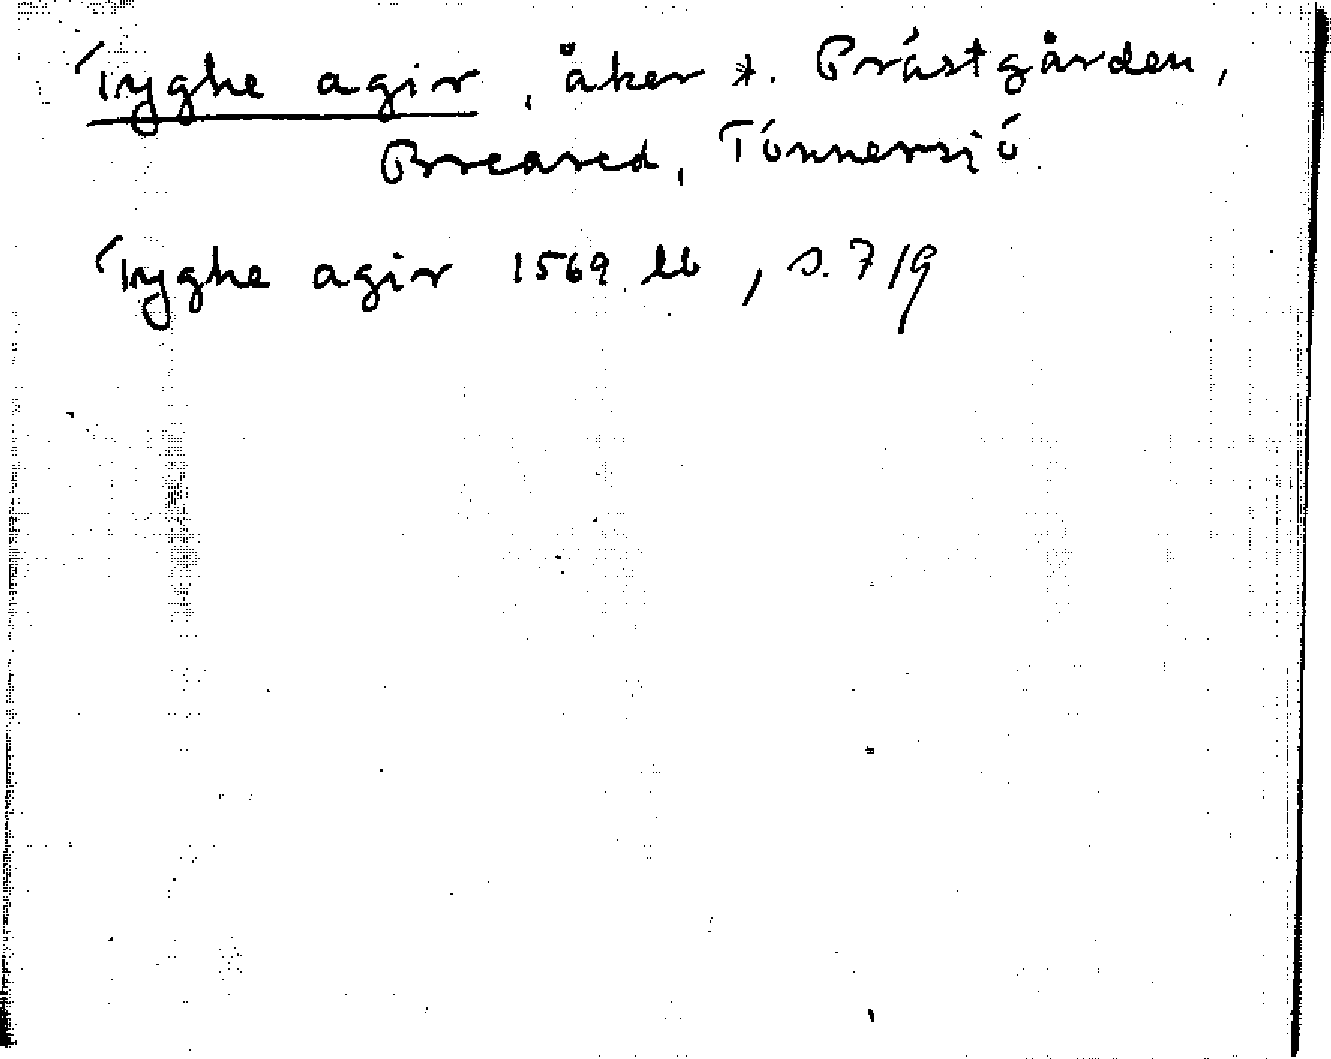 Tyghe agir, åker t. Prästgården,
Breared, Tönnersjö.
Tyghe agir 1569 lb, s. 719